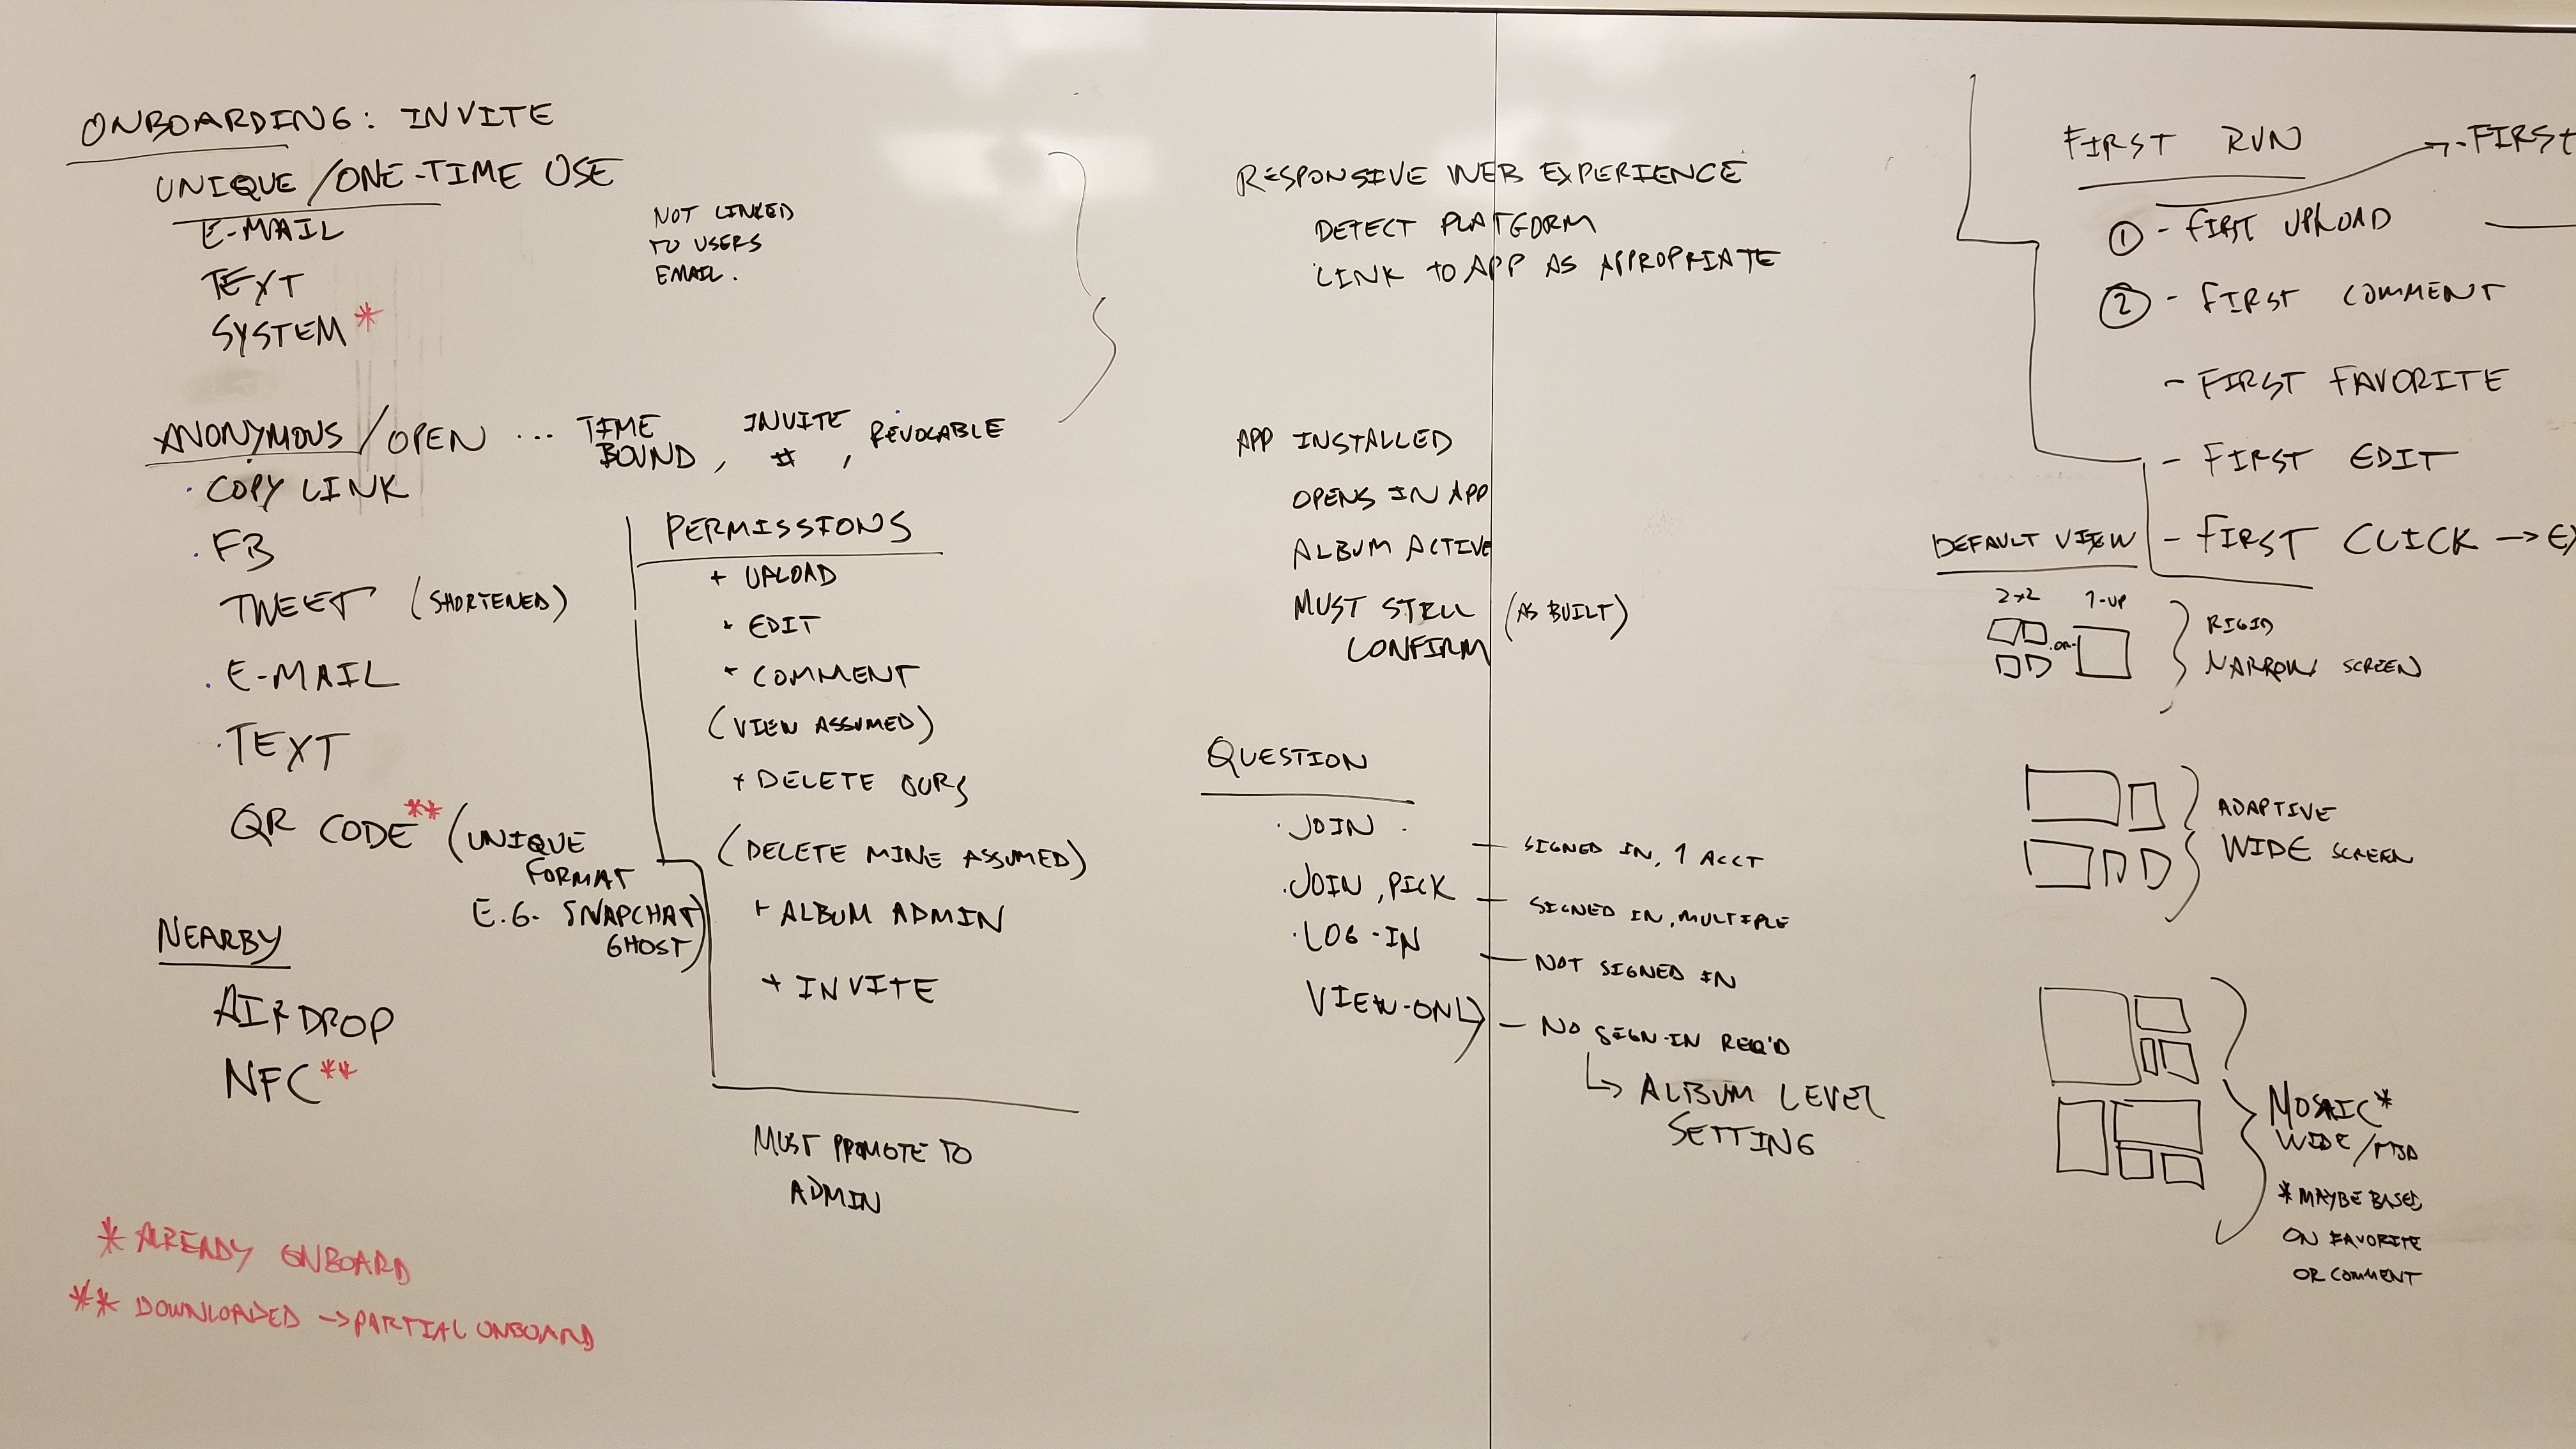 ONBOARDING: INVITE
UNIQUE/ONE-TIME USE
E-MAIL
TEXT
SYSTEM *
NOT LINKED
TO USERS
EMAIL.
ANONYMOUS/OPEN ... TIME BOUND, INVITE #, REVOCABLE
· COPY LINK
· FB
TWEET (SHORTENED)
· E-MAIL
· TEXT
QR CODE** (UNIQUE
FORMAT
E.G. SNAPCHAT
GHOST)
NEARBY
AIRDROP
NFC**
* ALREADY ONBOARD
** DOWNLOADED -> PARTIAL ONBOARD
PERMISSIONS
+ UPLOAD
+ EDIT
+ COMMENT
(VIEW ASSUMED)
+ DELETE OURS
(DELETE MINE ASSUMED)
+ ALBUM ADMIN
+ INVITE
MUST PROMOTE TO
ADMIN
RESPONSIVE WEB EXPERIENCE
DETECT PLATFORM
LINK TO APP AS APPROPRIATE
APP INSTALLED
OPENS IN APP
ALBUM ACTIVE
MUST STILL (AS BUILT)
CONFIRM
QUESTION
· JOIN - SIGNED IN, 1 ACCT
· JOIN, PICK - SIGNED IN, MULTIPLE
· LOG-IN - NOT SIGNED IN
VIEW-ONLY - NO SIGN-IN REQ'D
↳ ALBUM LEVEL
SETTING
FIRST RUN → - FIRST
① - FIRST UPLOAD
② - FIRST COMMENT
- FIRST FAVORITE
- FIRST EDIT
- FIRST CLICK → EX
DEFAULT VIEW
2x2 1-UP
-OR-
RIGID
NARROW SCREEN
ADAPTIVE
WIDE SCREEN
MOSAIC*
WIDE/
* MAYBE BASED
ON FAVORITE
OR COMMENT